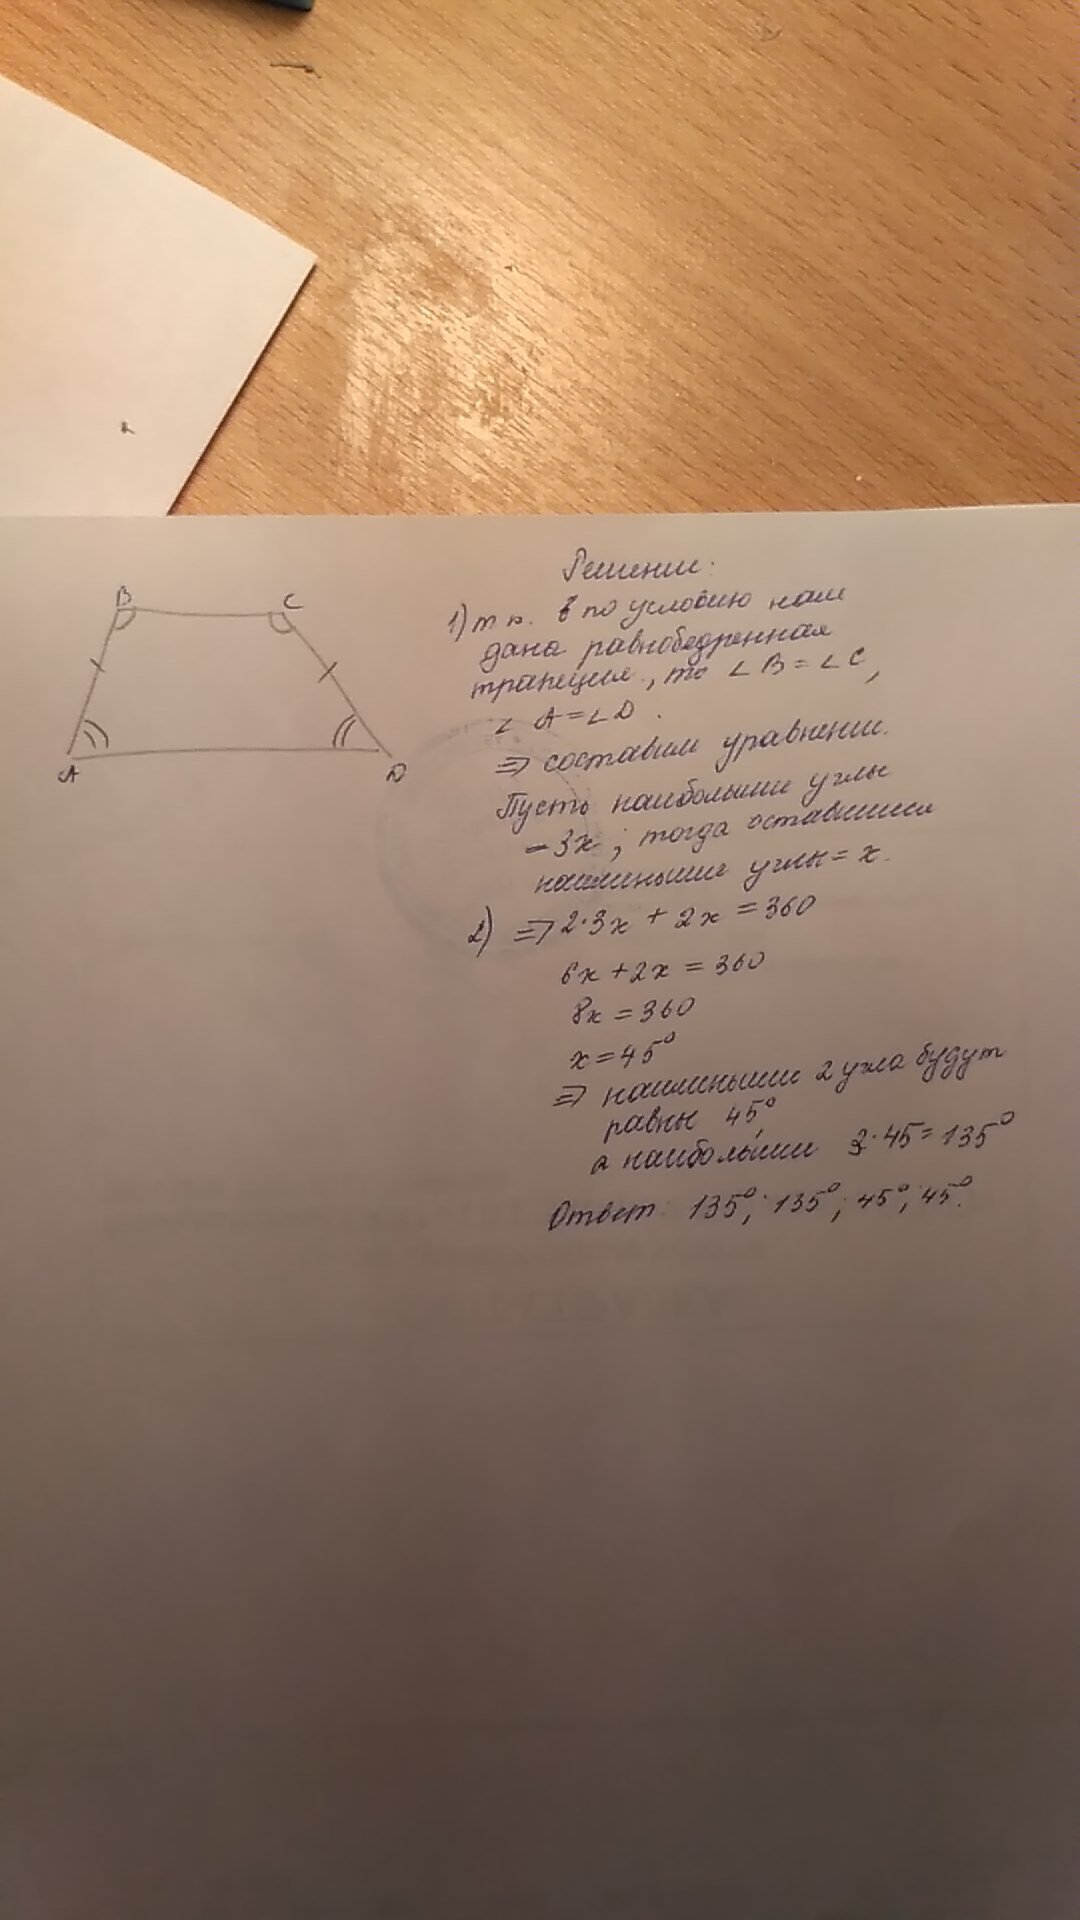 B C
A D
Решение:
1) т.к. по условию нам
дана равнобедренная
трапеция, то ∠B=∠C,
∠A=∠D.
⇒ составим уравнение.
Пусть наибольшие углы
- 3x; тогда оставшиеся
наименьшие углы = x.
2) ⇒ 2·3x + 2x = 360
6x + 2x = 360
8x = 360
x = 45°
⇒ наименьшие 2 угла будут
равны 45°,
а наибольшие 3·45=135°
Ответ: 135°; 135°; 45°; 45°.